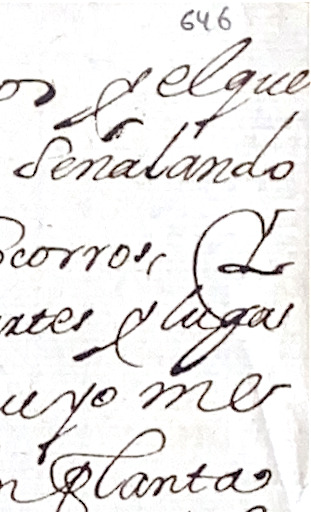 646
os y el que
Señalando
ocorros, Y
artes y lugas
ue yo me
n planta